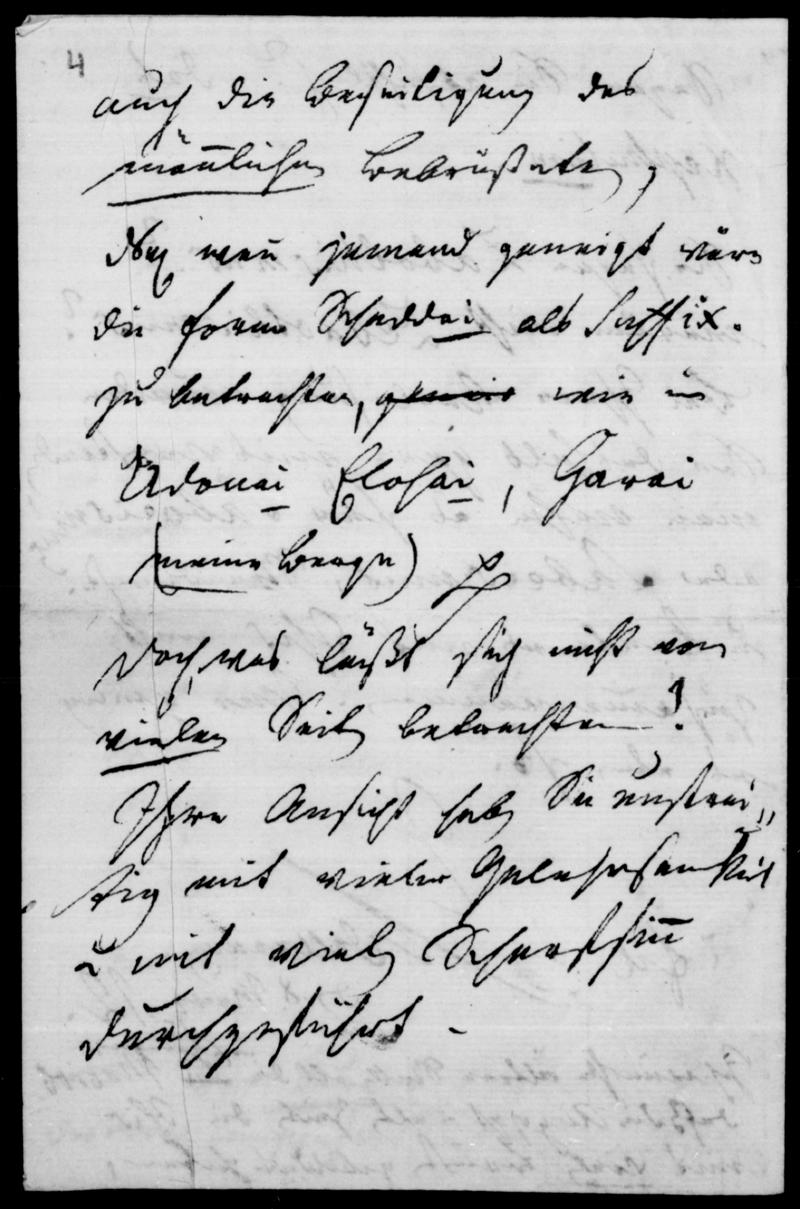 4
auch die Beseitigung des
mäñlichen Gebrüsteten,
doch weñ jemand geneigt wäre
die Form Schaddai als Suffix.
zu betrachten, wie in
Adonai Elohai, Garai
(meine Berge)
Doch, was läßt sich nicht von
vielen Seiten betrachten!
Ihre Ansicht haben Sie unstrei„
tig mit vieler Gelehrsamkeit
u mit vielem Scharfsiñ
durchgeführt. -